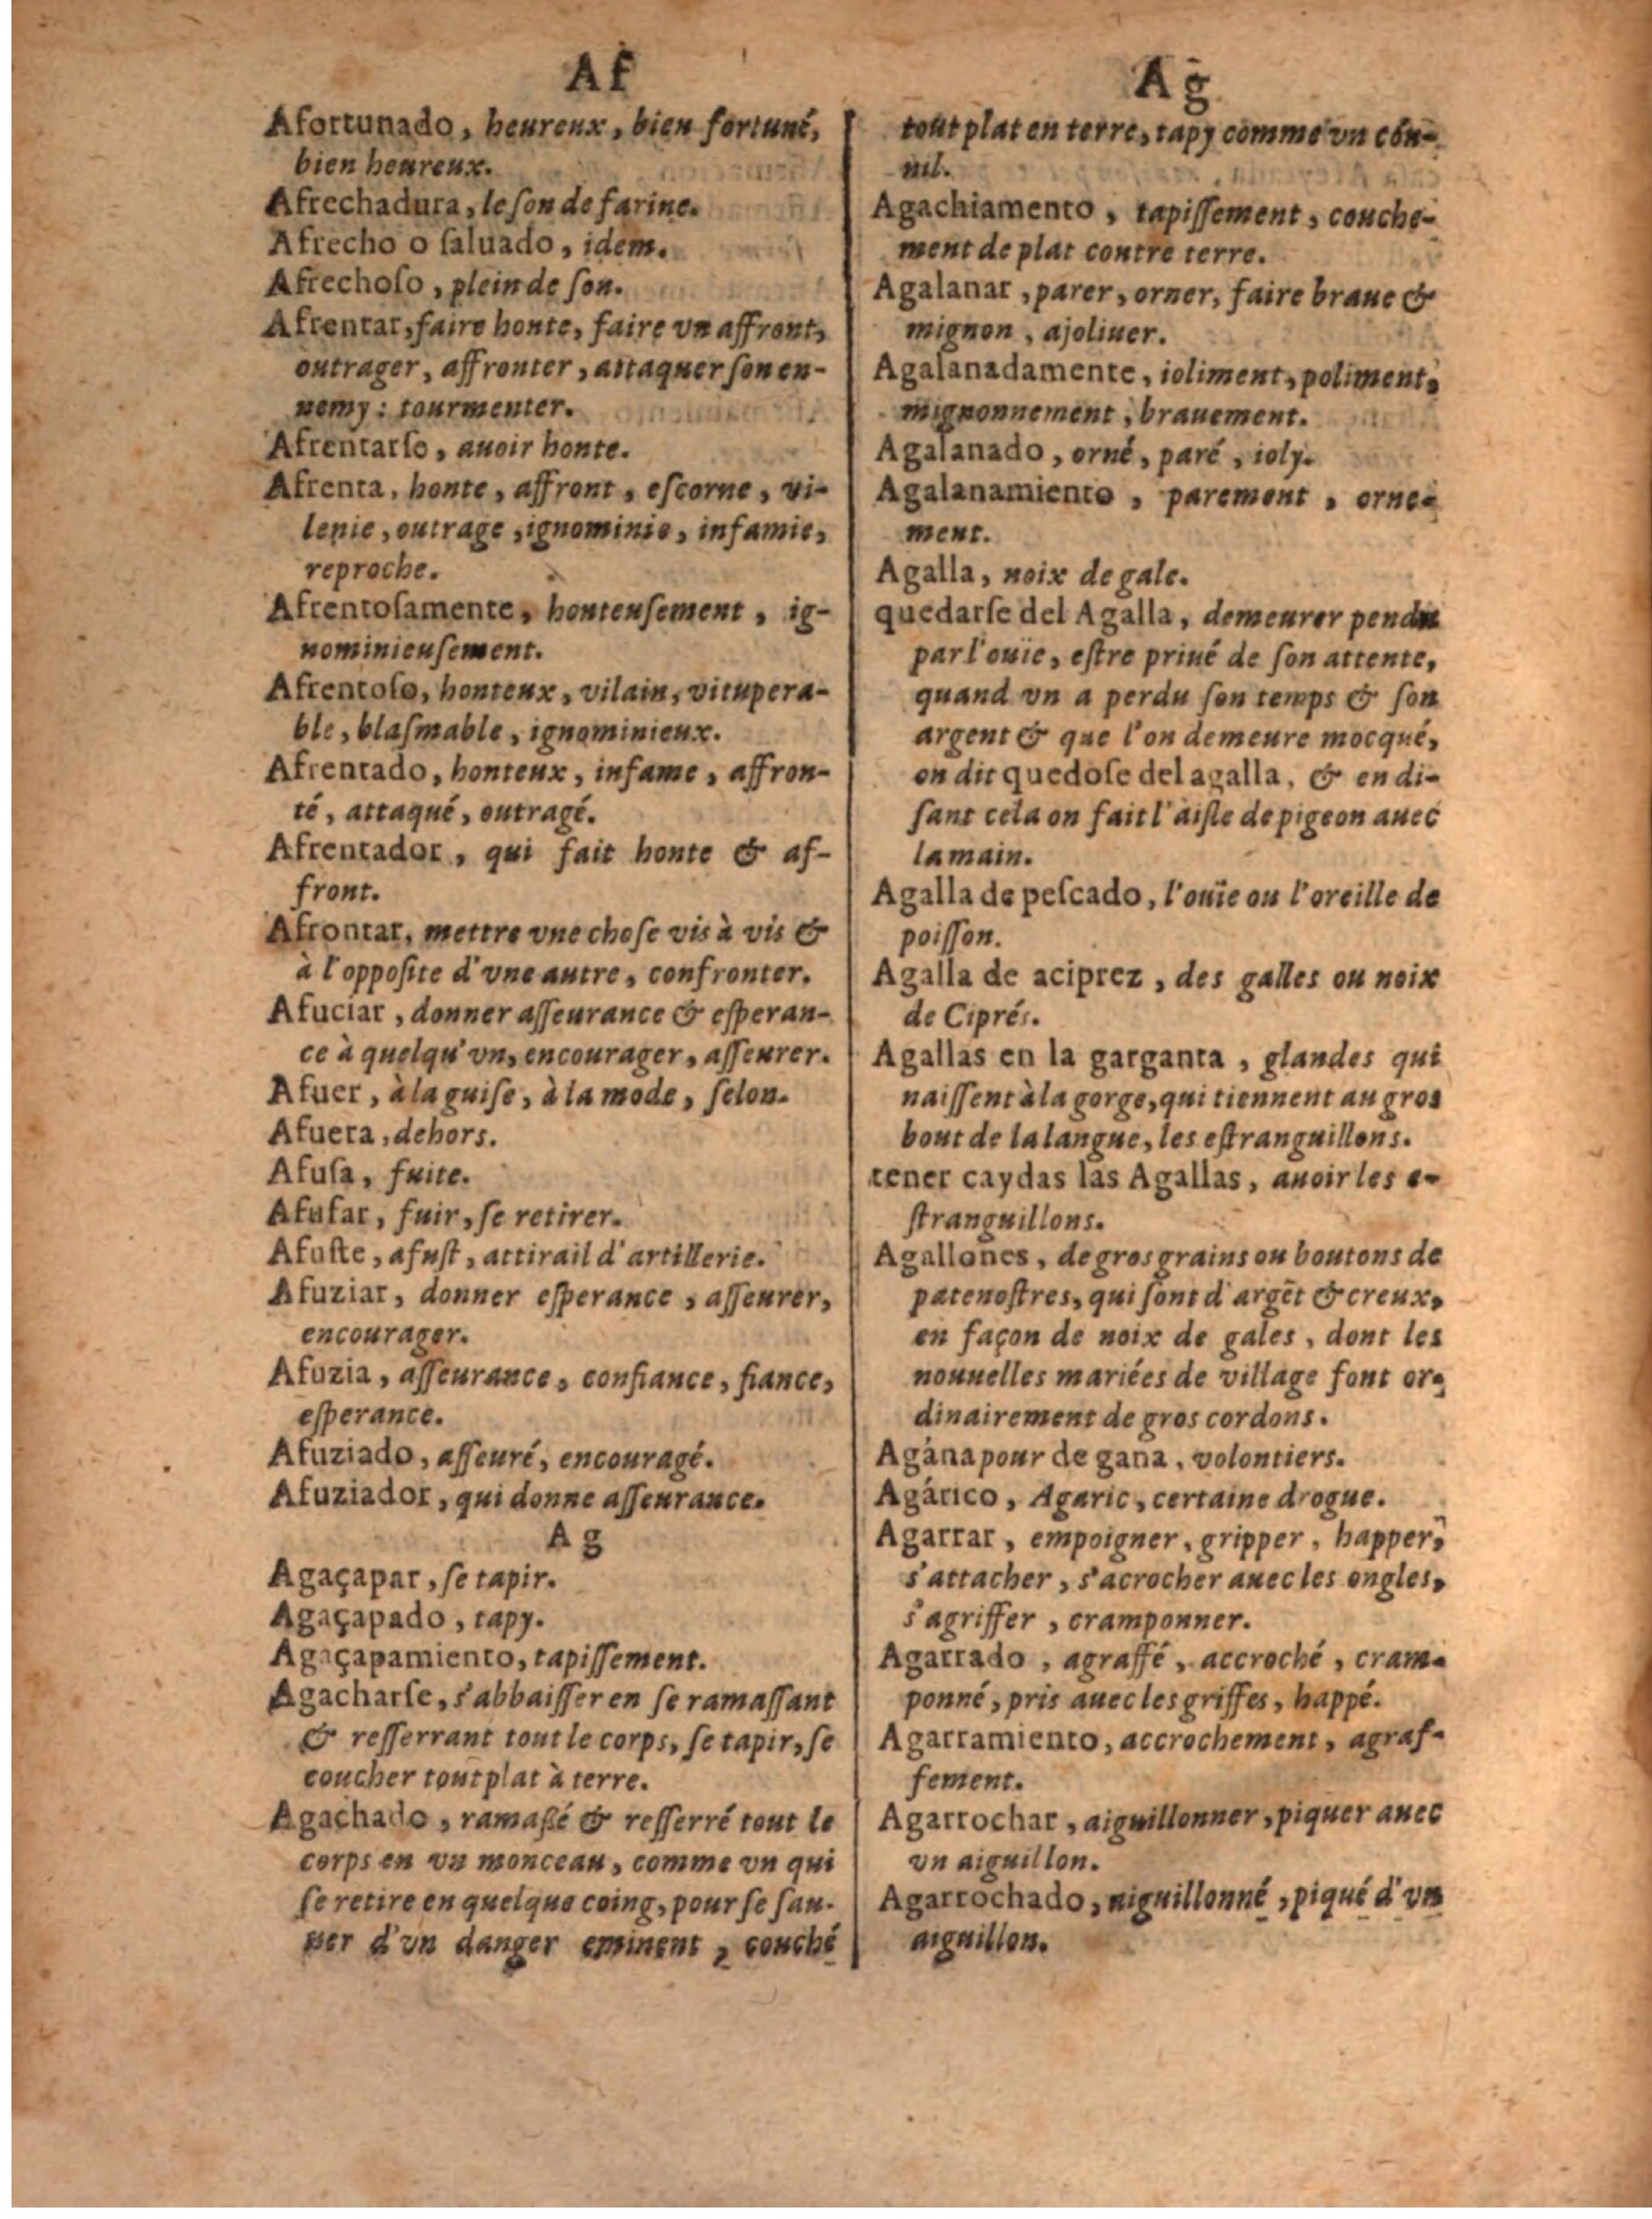 Af
Afortunado, heureux, bien fortuné,
bien heureux.
Afrechadura, le ſon de farine.
Afrecho o ſaluado, idem.
Afrechoſo, plein de ſon.
Afrentar, faire honte, faire vn affront,
outrager, affronter, attaquer ſon en-
nemy: tourmenter.
Afrentarſe, auoir honte.
Afrenta, honte, affront, eſcorne, vi-
lenie, outrage, ignominie, infamie,
reproche.
Afrentoſamente, honteuſement, ig-
nominieuſement.
Afrentoſo, honteux, vilain, vitupera-
ble, blaſmable, ignominieux.
Afrentado, honteux, infame, affron-
té, attaqué, outragé.
Afrentador, qui fait honte & af-
front.
Afrontar, mettre vne choſe vis à vis &
à l'oppoſite d'vne autre, confronter.
Afuciar, donner aſſeurance & eſperan-
ce à quelqu'vn, encourager, aſſeurer.
Afuer, à la guiſe, à la mode, ſelon.
Afuera, dehors.
Afuſa, fuite.
Afufar, fuir, ſe retirer.
Afuſte, afuſt, attirail d'artillerie.
Afuziar, donner eſperance, aſſeurer,
encourager.
Afuzia, aſſeurance, confiance, fiance,
eſperance.
Afuziado, aſſeuré, encouragé.
Afuziador, qui donne aſſeurance.
Ag
Agaçapar, ſe tapir.
Agaçapado, tapy.
Agaçapamiento, tapiſſement.
Agacharſe, s'abbaiſſer en ſe ramaſſant
& reſſerrant tout le corps, ſe tapir, ſe
coucher tout plat à terre.
Agachado, ramaßé & reſſerré tout le
corps en vn monceau, comme vn qui
ſe retire en quelque coing, pour ſe ſau-
uer d'vn danger eminent, couché
Ag
tout plat en terre, tapy comme vn con-
nil.
Agachiamento, tapiſſement, couche-
ment de plat contre terre.
Agalanar, parer, orner, faire braue &
mignon, ajoliuer.
Agalanadamente, ioliment, poliment,
mignonnement, brauement.
Agalanado, orné, paré, ioly.
Agalanamiento, parement, orne-
ment.
Agalla, noix de gale.
quedarſe del Agalla, demeurer pendu
par l'ouïe, eſtre priué de ſon attente,
quand vn a perdu ſon temps & ſon
argent & que l'on demeure mocqué,
on dit quedoſe del agalla, & en di-
ſant cela on fait l'aiſle de pigeon auec
la main.
Agalla de peſcado, l'ouïe ou l'oreille de
poiſſon.
Agalla de aciprez, des galles ou noix
de Ciprés.
Agallas en la garganta, glandes qui
naiſſent à la gorge, qui tiennent au gros
bout de la langue, les eſtranguillons.
tener caydas las Agallas, auoir les e-
ſtranguillons.
Agallones, de gros grains ou boutons de
patenoſtres, qui ſont d'argēt & creux,
en façon de noix de gales, dont les
nouuelles mariées de village font or-
dinairement de gros cordons.
Agána pour de gana, volontiers.
Agárico, Agaric, certaine drogue.
Agarrar, empoigner, gripper, happer,
s'attacher, s'acrocher auec les ongles,
s'agriffer, cramponner.
Agarrado, agraffé, accroché, cram-
ponné, pris auec les griffes, happé.
Agarramiento, accrochement, agraf-
fement.
Agarrochar, aiguillonner, piquer auec
vn aiguillon.
Agarrochado, aiguillonné, piqué d'vn
aiguillon.